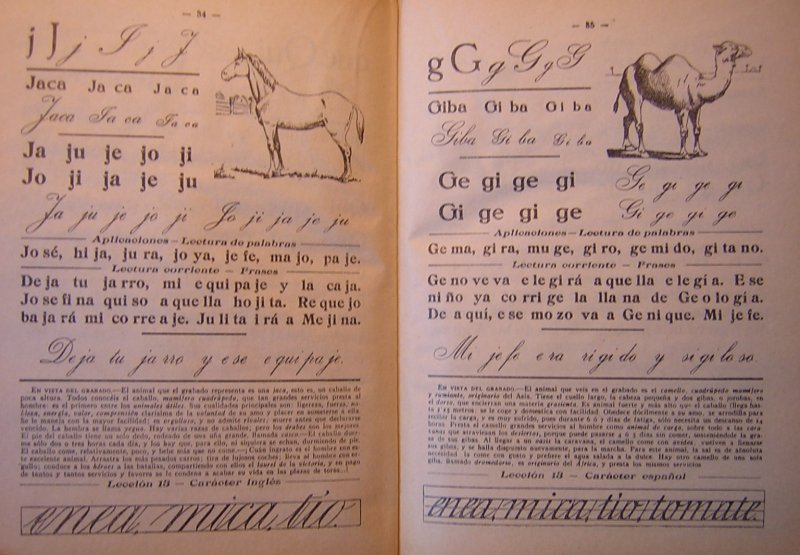 — 34 —
j J j J j J
Jaca Ja ca Ja ca
Jaca Ja ca Ja ca
Ja ju je jo ji
Jo ji ja je ju
Ja ju je jo ji Jo ji ja je ju
Aplicaciones—Lectura de palabras
Jo sé, hi ja, ju ra, jo ya, je fe, ma jo, pa je.
Lectura corriente—Frases
De ja tu ja rro, mi e qui pa je y la ca ja.
Jo se fi na qui so a que lla ho ji ta. Re que jo
ba ja rá mi co rre a je. Ju li ta i rá a Me ji na.
Deja tu jarro y ese equipaje.
EN VISTA DEL GRABADO.—El animal que el grabado representa es una jaca, esto es, un caballo de
poca altura. Todos conocéis el caballo, mamífero cuadrúpedo, que tan grandes servicios presta al
hombre: es el primero entre los animales útiles. Sus cualidades principales son: ligereza, fuerza, no-
bleza, energía, valor, comprensión clarísima de la voluntad de su amo y placer en someterse a ella.
Se le maneja con la mayor facilidad; es orgulloso, y no admite rivales; muere antes que declararse
vencido. La hembra se llama yegua. Hay varias razas de caballos; pero los árabes son los mejores.
El pie del caballo tiene un solo dedo, rodeado de una uña grande, llamada casco.—El caballo duer-
me sólo dos o tres horas cada día, y los hay que, para ello, ni siquiera se echan, durmiendo de pie.
El caballo come, relativamente, poco, y bebe más que no come.—¡Cuán ingrato es el hombre con es-
te excelente animal. Arrastra los más pesados carros; tira de lujosos coches; lleva al hombre con or-
gullo; conduce a los héroes a las batallas, compartiendo con ellos el laurel de la victoria, y en pago
de tantos y tantos servicios y favores se le condena a acabar su vida en las plazas de toros...!
Lección 13 — Carácter inglés
enea, mica, tío.
— 35 —
g G g G g G
Giba Gi ba Gi ba
Giba Gi ba Gi ba
Ge gi ge gi Ge gi ge gi
Gi ge gi ge Gi ge gi ge
Aplicaciones—Lectura de palabras
Ge ma, gi ra, mu ge, gi ro, ge mi do, gi ta no.
Lectura corriente — Frases
Ge no ve va e le gi rá a que lla e le gí a. E se
ni ño ya co rri ge la lla na de Ge o lo gí a.
De a quí, e se mo zo va a Ge ni que. Mi je fe.
Mi jefe era rígido y sigiloso.
EN VISTA DEL GRABADO.—El animal que veis en el grabado es el camello, cuadrúpedo mamífero
y rumiante, originario del Asia. Tiene el cuello largo, la cabeza pequeña y dos gibas, o jorobas, en
el dorso, que encierran una materia grasienta. Es animal fuerte y más alto que el caballo (llega has-
ta 2'25 metros): se le coge y domestica con facilidad. Obedece dócilmente a su amo, se arrodilla para
recibir la carga, y es muy sufrido, pues durante 6 ó 7 días de fatiga, sólo necesita un descanso de 14
horas. Presta al camello grandes servicios al hombre como animal de carga, sobre todo a las cara-
vanas que atraviesan los desiertos, porque puede pasarse 4 ó 5 días sin comer, sosteniéndole la gra-
sa de sus gibas. Al llegar a un oasis la caravana, el camello come con avidez, vuelven a llenarse
sus gibas, y se halla dispuesto nuevamente, para la marcha. Para este animal, la sal es de absoluta
necesidad: la come con gusto y prefiere el agua salada a la dulce. Hay otro camello de una sola
giba, llamado dromedario, es originario del África, y presta los mismos servicios
Lección 13 — Carácter español
enea, mica, tío, tomate.